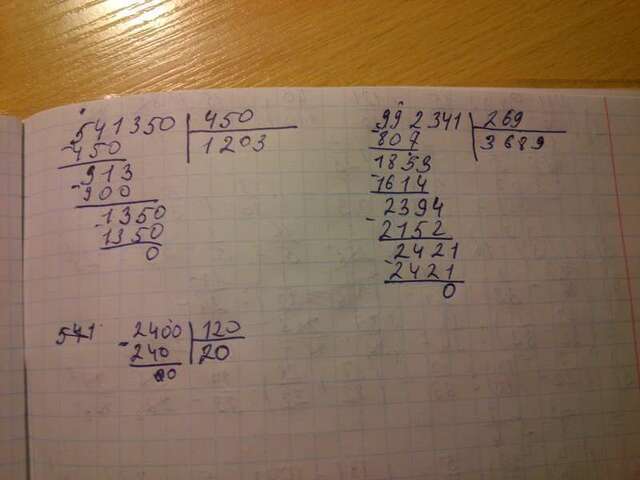 541350 450
- 450 1203
913
- 900
1350
- 1350
0
992341 269
- 807 3689
1853
- 1614
2394
- 2152
2421
- 2421
0
541 2400 120
- 240 20
00